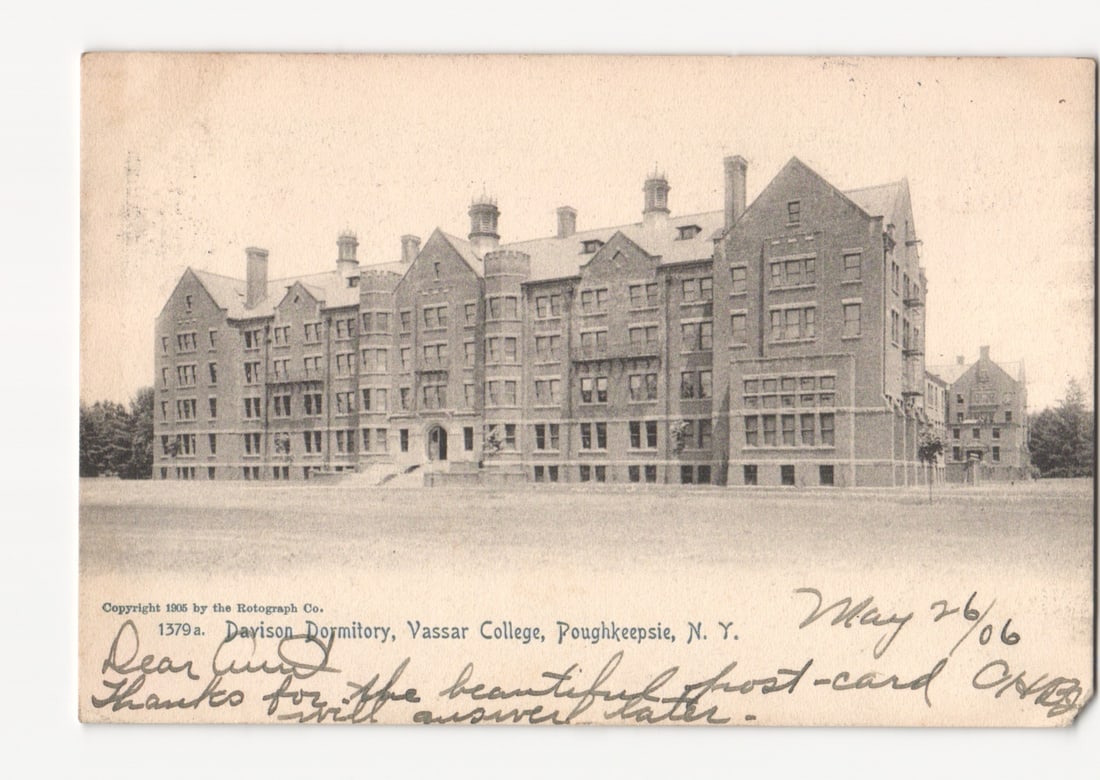 Copyright 1905 by the Rotograph Co.
1379 a. Davison Dormitory, Vassar College, Poughkeepsie, N. Y.
May 26/06
Dear Aunt
Thanks for the beautiful post-card
will answer later.